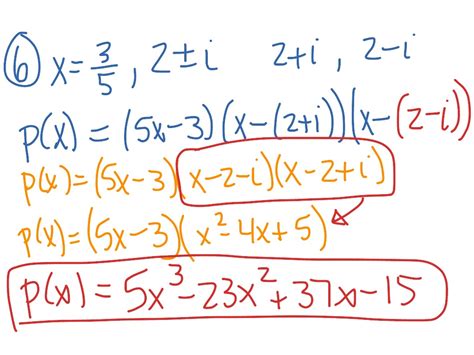 ⑥ x = 3/5 , 2±i 2+i , 2-i
p(x) = (5x-3)(x-(2+i))(x-(2-i))
p(x) = (5x-3)(x-2-i)(x-2+i)
p(x) = (5x-3)(x²-4x+5)
p(x) = 5x³-23x²+37x-15